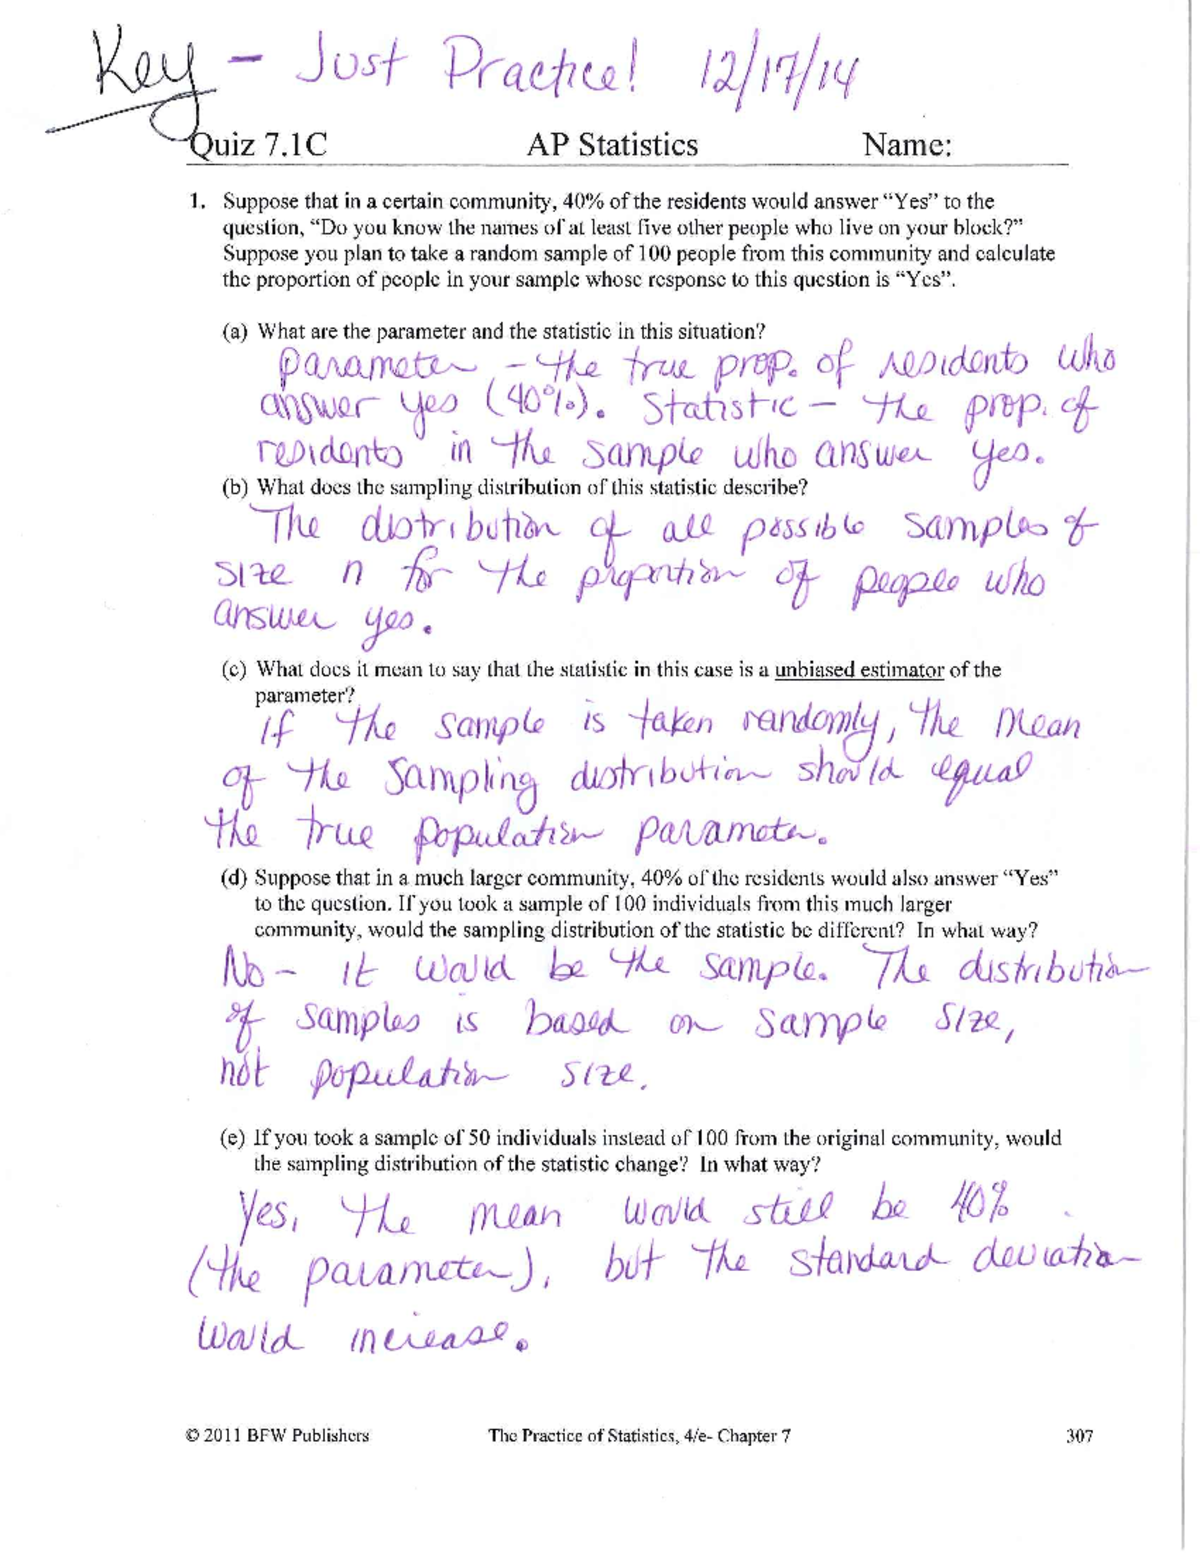 Key - Just Practice! 12/17/14
Quiz 7.1C AP Statistics Name:
1. Suppose that in a certain community, 40% of the residents would answer “Yes” to the
question, “Do you know the names of at least five other people who live on your block?”
Suppose you plan to take a random sample of 100 people from this community and calculate
the proportion of people in your sample whose response to this question is “Yes”.
(a) What are the parameter and the statistic in this situation?
parameter - the true prop. of residents who
answer yes (40%). Statistic - the prop. of
residents in the sample who answer yes.
(b) What does the sampling distribution of this statistic describe?
The distribution of all possible samples of
size n for the proportion of people who
answer yes.
(c) What does it mean to say that the statistic in this case is a unbiased estimator of the
parameter?
If the sample is taken randomly, the mean
of the sampling distribution should equal
the true population parameter.
(d) Suppose that in a much larger community, 40% of the residents would also answer “Yes”
to the question. If you took a sample of 100 individuals from this much larger
community, would the sampling distribution of the statistic be different? In what way?
No - it would be the sample. The distribution
of samples is based on sample size,
not population size.
(e) If you took a sample of 50 individuals instead of 100 from the original community, would
the sampling distribution of the statistic change? In what way?
Yes, the mean would still be 40%
(the parameter), but the standard deviation
would increase.
© 2011 BFW Publishers The Practice of Statistics, 4/e- Chapter 7 307